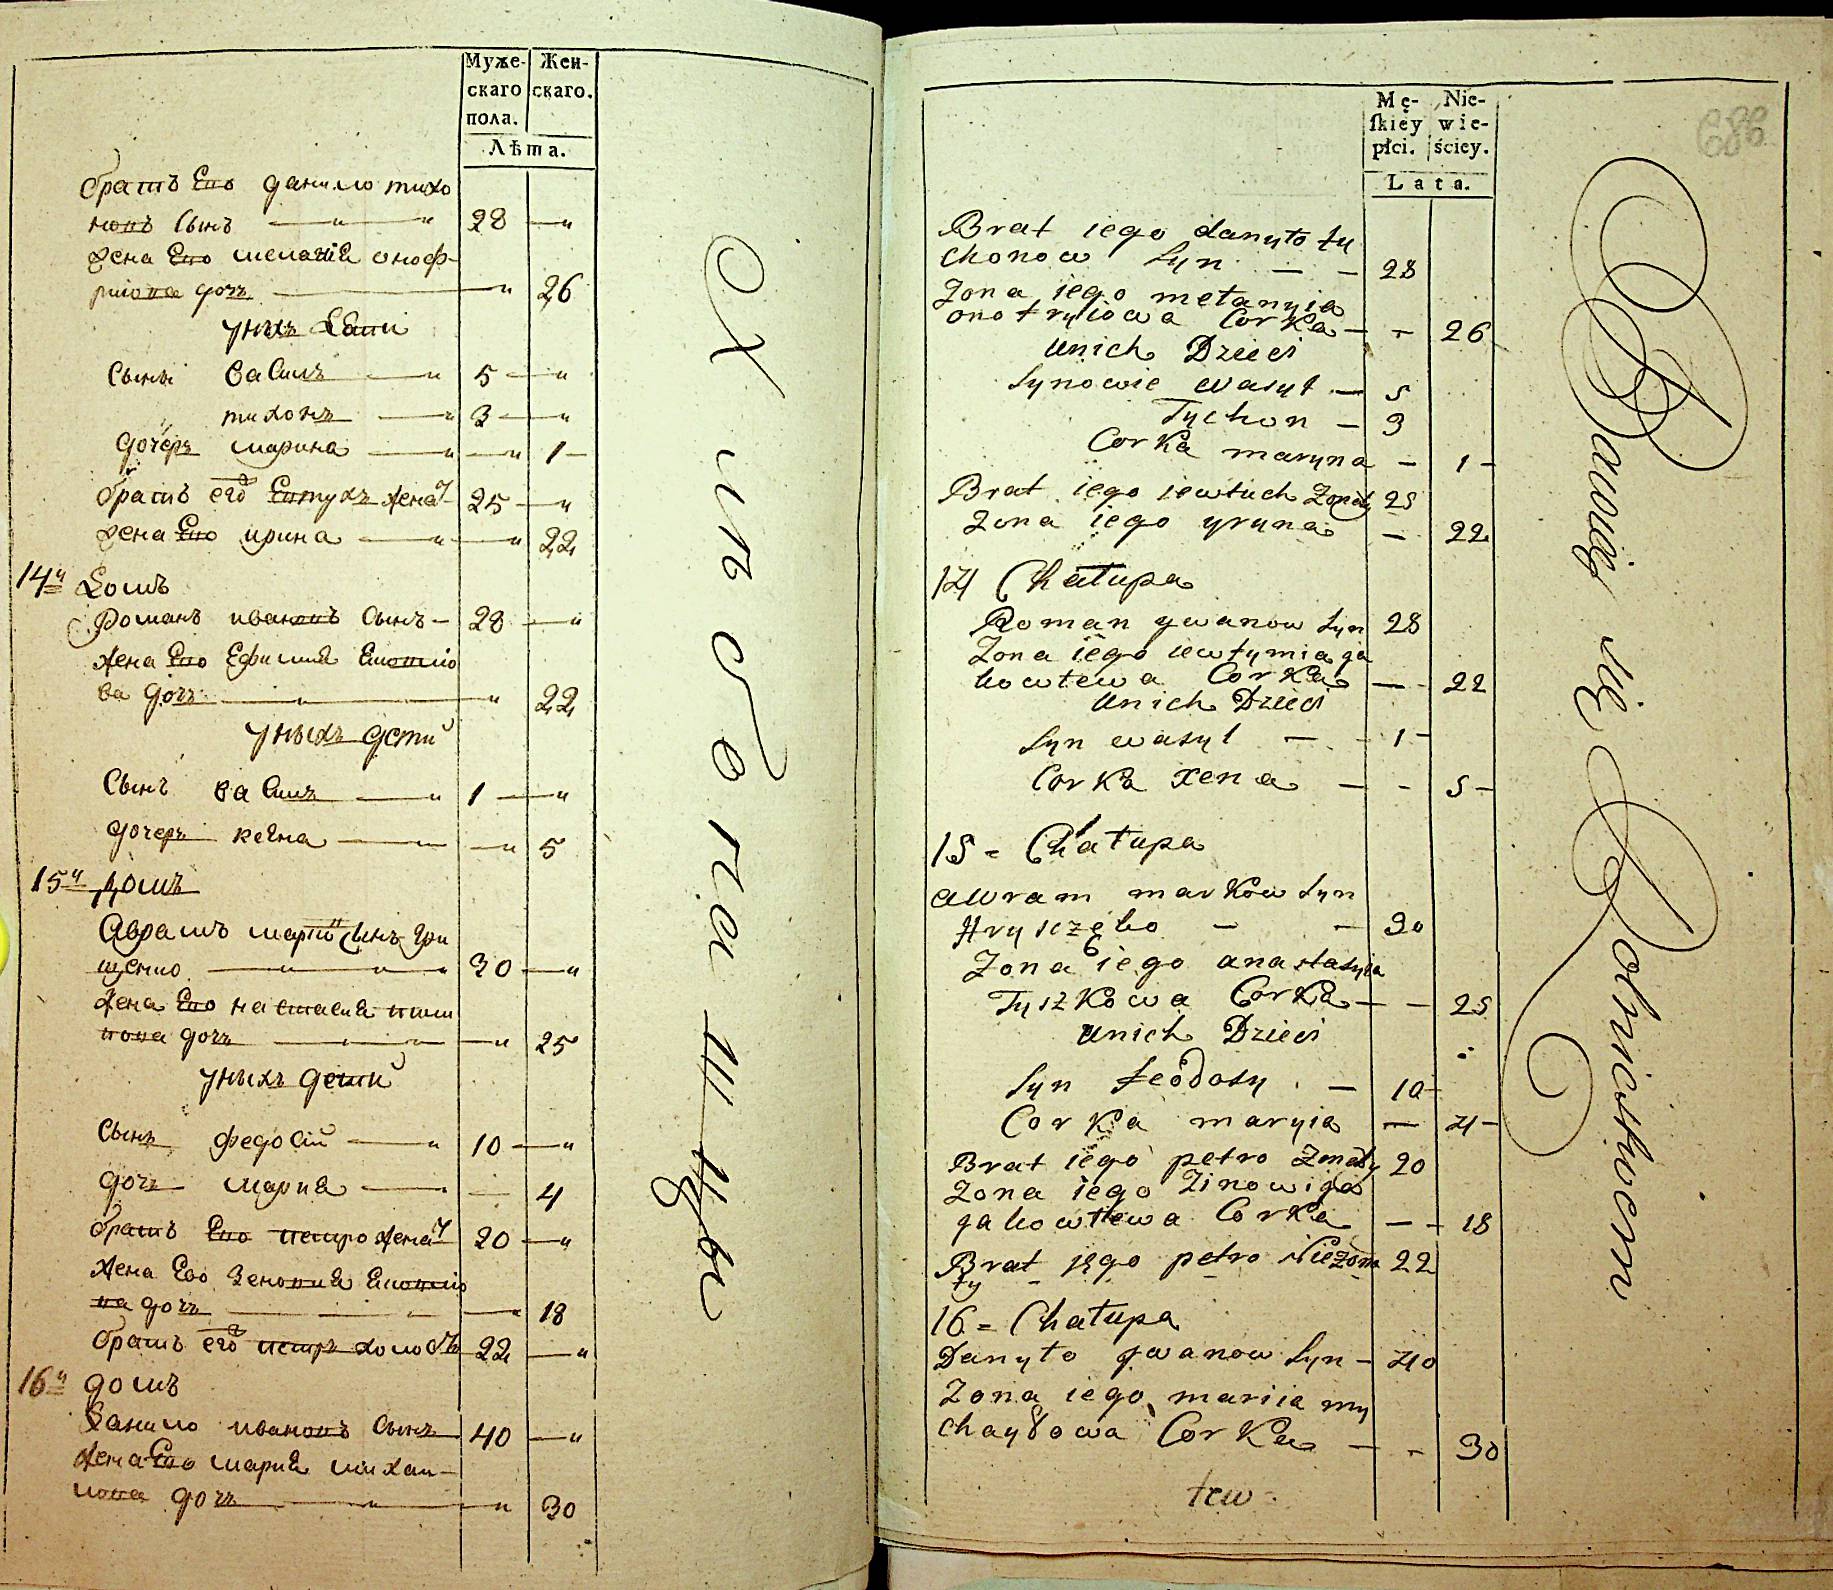 Муже-
скаго
пола.
Жен-
скаго.
Лѣта.
братъ Его данило тихо
новъ сынъ 28
жена Его меланія оноф-
ріюва дочь 26
у нихъ дѣти
сыны василь 5
тихонъ 3
дочерь марина 1
братъ его Евтухъ женат 25
жена Его ирина 22
14й домъ
Романъ ивановъ сынъ 28
жена Его Ефимия
ва дочь 22
у ныхъ дети
сынъ василь 1
дочерь ксена 5
15й домъ
Аврамъ марков сынъ гри
щенко 30
жена Его настасия тиш
кова дочь 25
у ныхъ дети
сынъ федосій 10
дочь мария 4
братъ Его петро женат 20
жена Его Зеновия
ва дочь 18
братъ его петръ холостъ 22
16й домъ
Данило ивановъ сынъ 40
жена Его мария михаи-
лова дочь 30
Хлѣбопашцы
Mę-
ſkiey
płci.
Nie-
wie-
ściey.
Lata.
686
Brat iego danyło ty
chonow Syn 28
Zona iego mełanyia
onofryiowa Corka 26
unich Dzieci
Synowie wasyl 5
Tychon 3
Corka maryna 1
Brat iego iewtuch Zonaty 25
Zona iego yryna 22
14 Chałupa
Roman ywanow Syn 28
Zona iego iewfymia ja
kowlewa Corka 22
unich Dzieci
Syn wasyl 1
Corka xena 5
15 = Chałupa
awram markow Syn
Hryszczęko 30
Zona iego anastasyia
Tyszkowa Corka 25
unich Dzieci
Syn feodosy 10
Corka maryia 4
Brat iego petro Zonaty 20
Zona iego Zinowija
jakowlewa Corka 18
Brat jego petro Niezona 22
ty
16 = Chałupa
Danyło ywanow Syn 40
Zona iego mariia my
chayłowa Corka 30
tew
Bawię się Rolnictwem